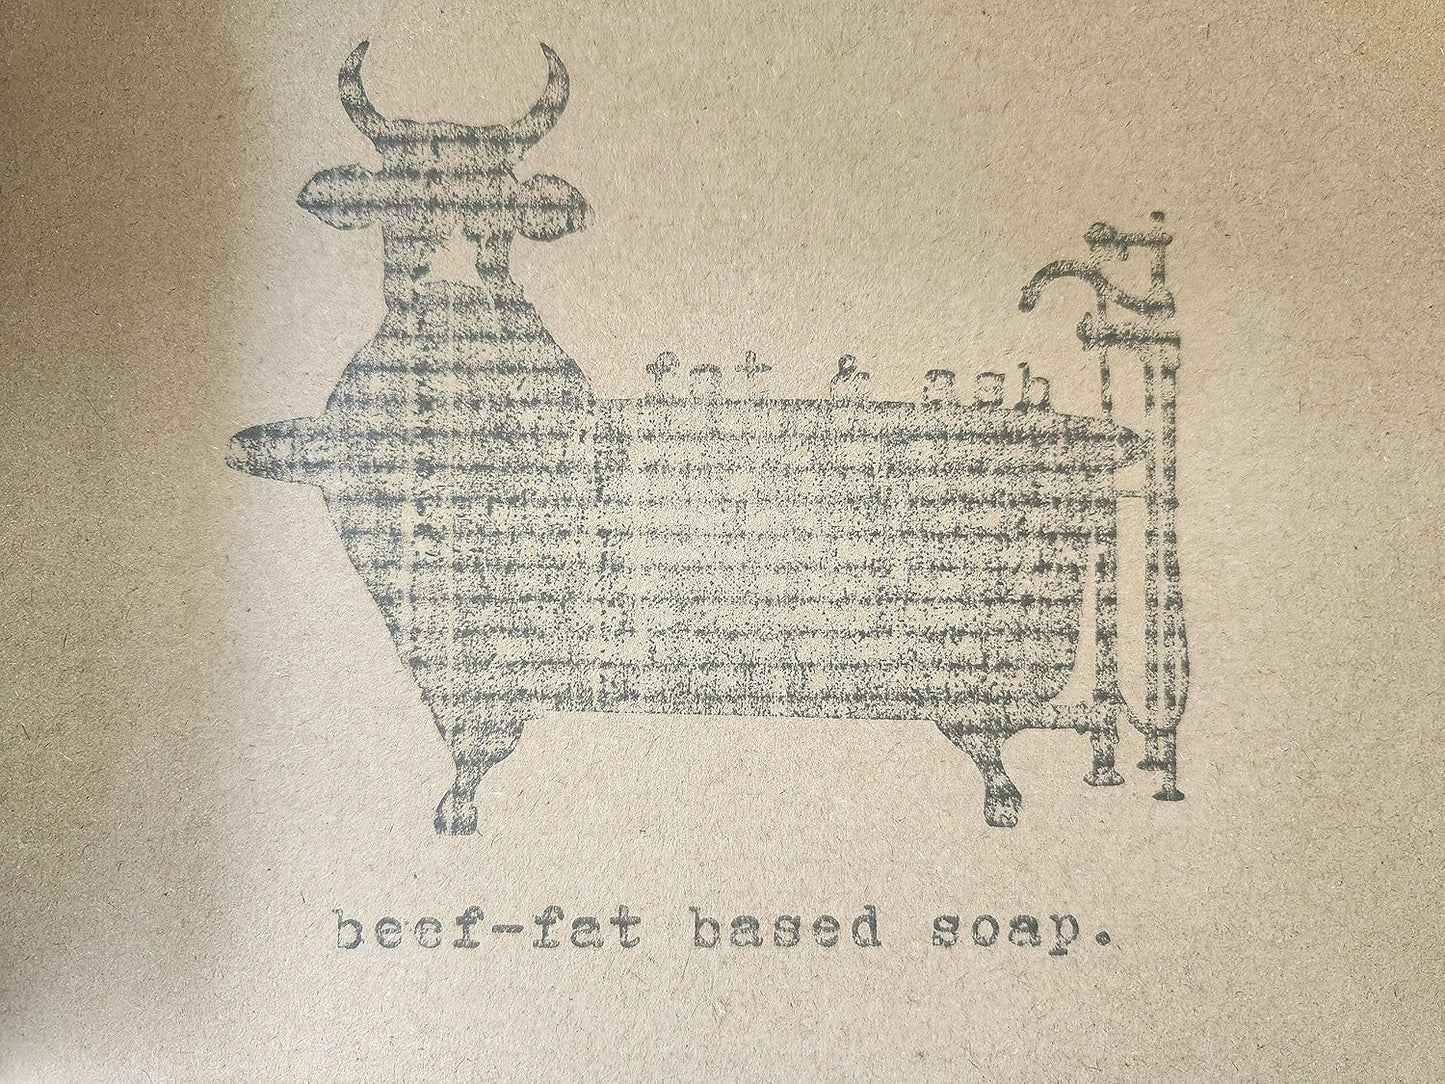 fat & ash
beef-fat based soap.